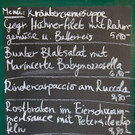 Menü: Kräutercremesuppe
Gegr. Hühner-Filet mit Rahm
gemüse u. Butterreis
Bunter Blattsalat mit
Marinierte Babymozzarella
Rindercarpaccio am Ruccola
Rostbraten im Eierschwam
pfeffersauce mit Petersilerdäp
feln